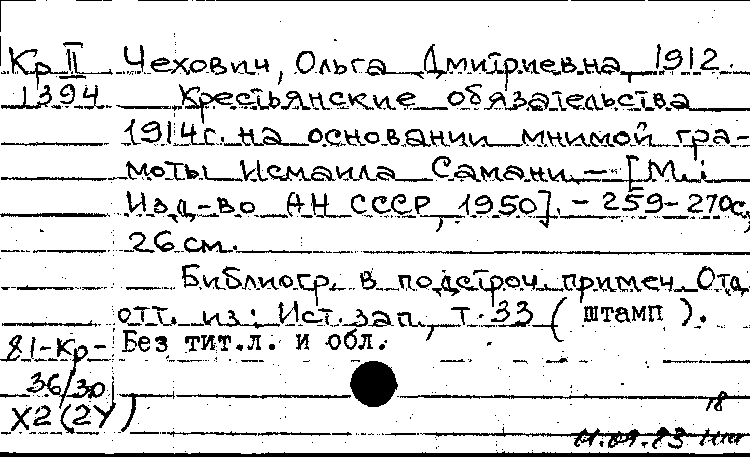 Кр II Чехович, Ольга Дмитриевна, 1912.
1394 Крестьянские обязательства
1914г. на основании мнимой гра-
моты Исмаила Самани. — [М.:
Изд-во АН СССР, 1950]. - 259-270с,
26 см.
Библиогр. в подстроч. примеч. Отд.
отт. из: Ист. зап., т. 33 ( штамп ).
81-Кр- Без тит.л. и обл.
36/30
X2(2У)
18
01.09.83